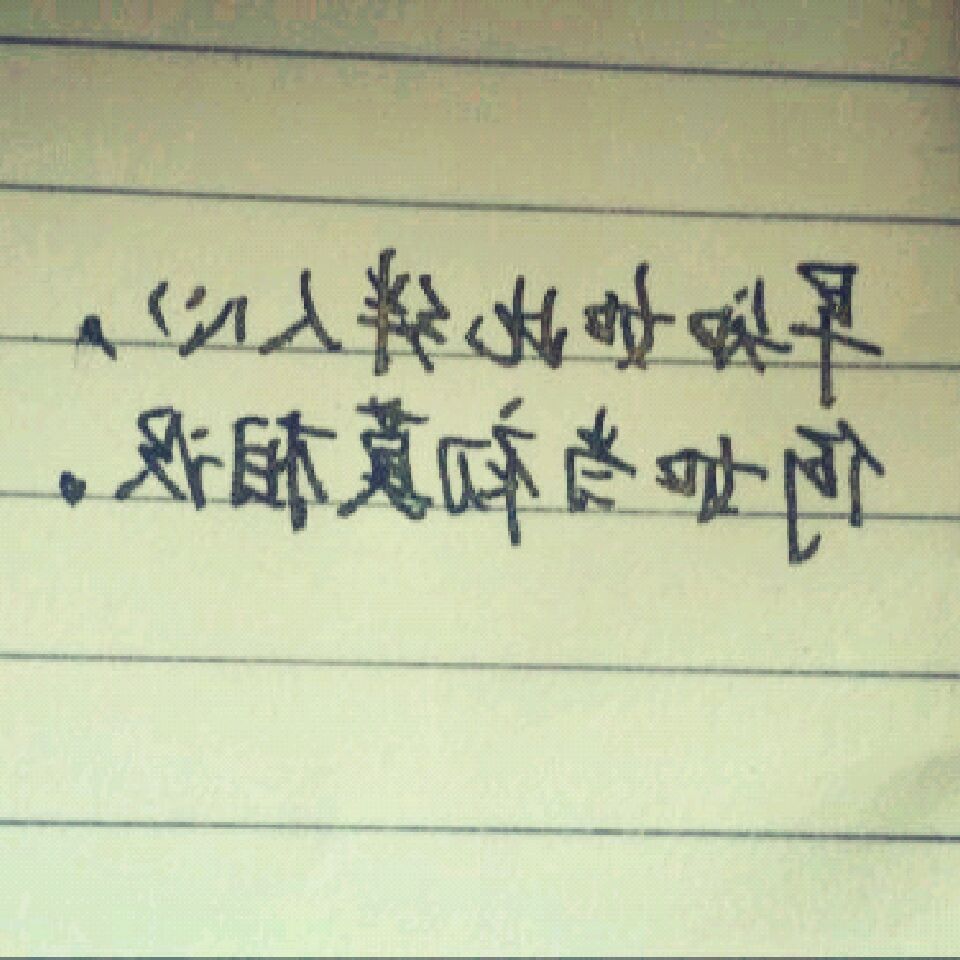 早知如此绊人心,
何如当初莫相识.